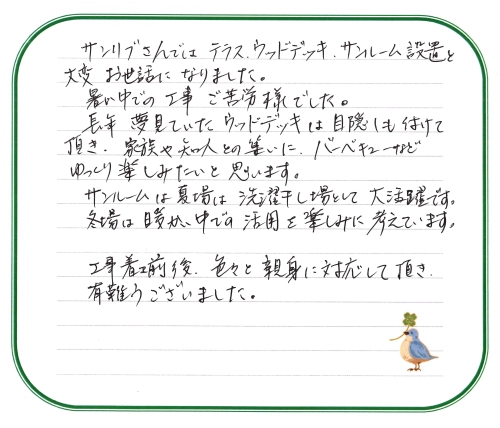 サンリブさんでは テラス、ウッドデッキ、サンルーム設置と
大変 お世話に なりました。
暑い中での 工事 ご苦労様でした。
長年 夢見ていた ウッドデッキは 目隠しも付けて
頂き、家族や知人との集いに、バーベキューなど
ゆっくり楽しみたいと思います。
サンルームは夏場は 洗濯干し場として 大活躍です。
冬場は 暖かい中での 活用を楽しみに考えています。
工事着工前後、色々と親身に対応して頂き、
有難うございました。